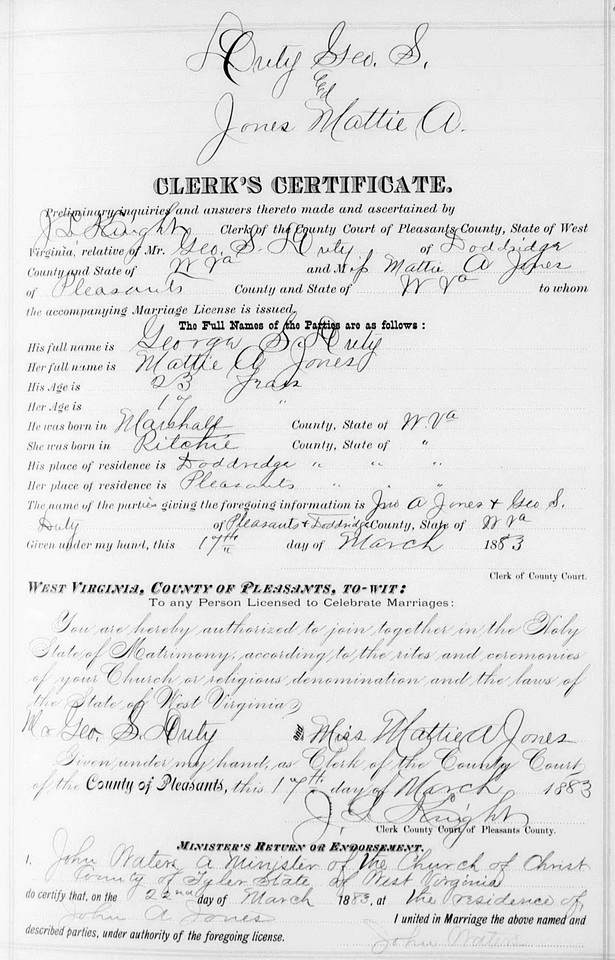 Duty Geo. S.
&
Jones Mattie A.
CLERK'S CERTIFICATE.
Preliminary inquiries and answers thereto made and ascertained by
J L Knight Clerk of the County Court of Pleasants County, State of West
Virginia, relative of Mr. Geo. S. Duty of Doddridge
County and State of W Va and Miss Mattie A Jones
of Pleasants County and State of W Va to whom
the accompanying Marriage License is issued.
The Full Names of the Parties are as follows:
His full name is George S. Duty
Her full name is Mattie A Jones
His Age is 23 Years
Her Age is 17 "
He was born in Marshall County, State of W Va
She was born in Ritchie County, State of "
His place of residence is Doddridge " " "
Her place of residence is Pleasants " " "
The name of the parties giving the foregoing information is Jno A Jones & Geo S.
Duty of Pleasants & Doddridge County, State of W Va
Given under my hand, this 17th day of March 1883
Clerk of County Court.
WEST VIRGINIA, COUNTY OF PLEASANTS, TO-WIT:
To any Person Licensed to Celebrate Marriages:
You are hereby authorized to join together in the Holy
State of Matrimony, according to the rites and ceremonies
of your Church or religious denomination and the laws of
the State of West Virginia,
Mr Geo. S. Duty and Miss Mattie A Jones
Given under my hand, as Clerk of the County Court
of the County of Pleasants, this 17th day of March 1883
J. L. Knight
Clerk County Court of Pleasants County.
MINISTER'S RETURN OR ENDORSEMENT.
I, John Waters a Minister of the Church of Christ
County of Tyler State of West Virginia
do certify that, on the 22nd day of March 1883, at the residence of
John A Jones I united in Marriage the above named and
described parties, under authority of the foregoing license.
John Waters